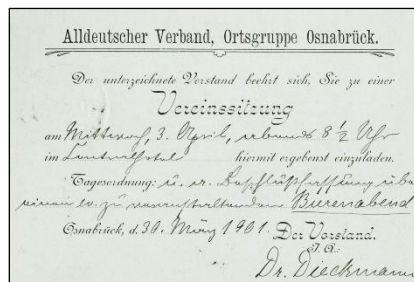 Alldeutscher Verband, Ortsgruppe Osnabrück.
Der unterzeichnete Vorstand beehrt sich, Sie zu einer
Vereinssitzung
am Mittwoch, 3. April, abends 8 1/2 Uhr
im Centralhotel hiermit ergebenst einzuladen.
Tagesordnung: u. a. Beschlußfassung über
einen ev. zu veranstaltenden Burenabend
Osnabrück, d. 30. März 1901. Der Vorstand.
J. A.:
Dr. Dieckmann